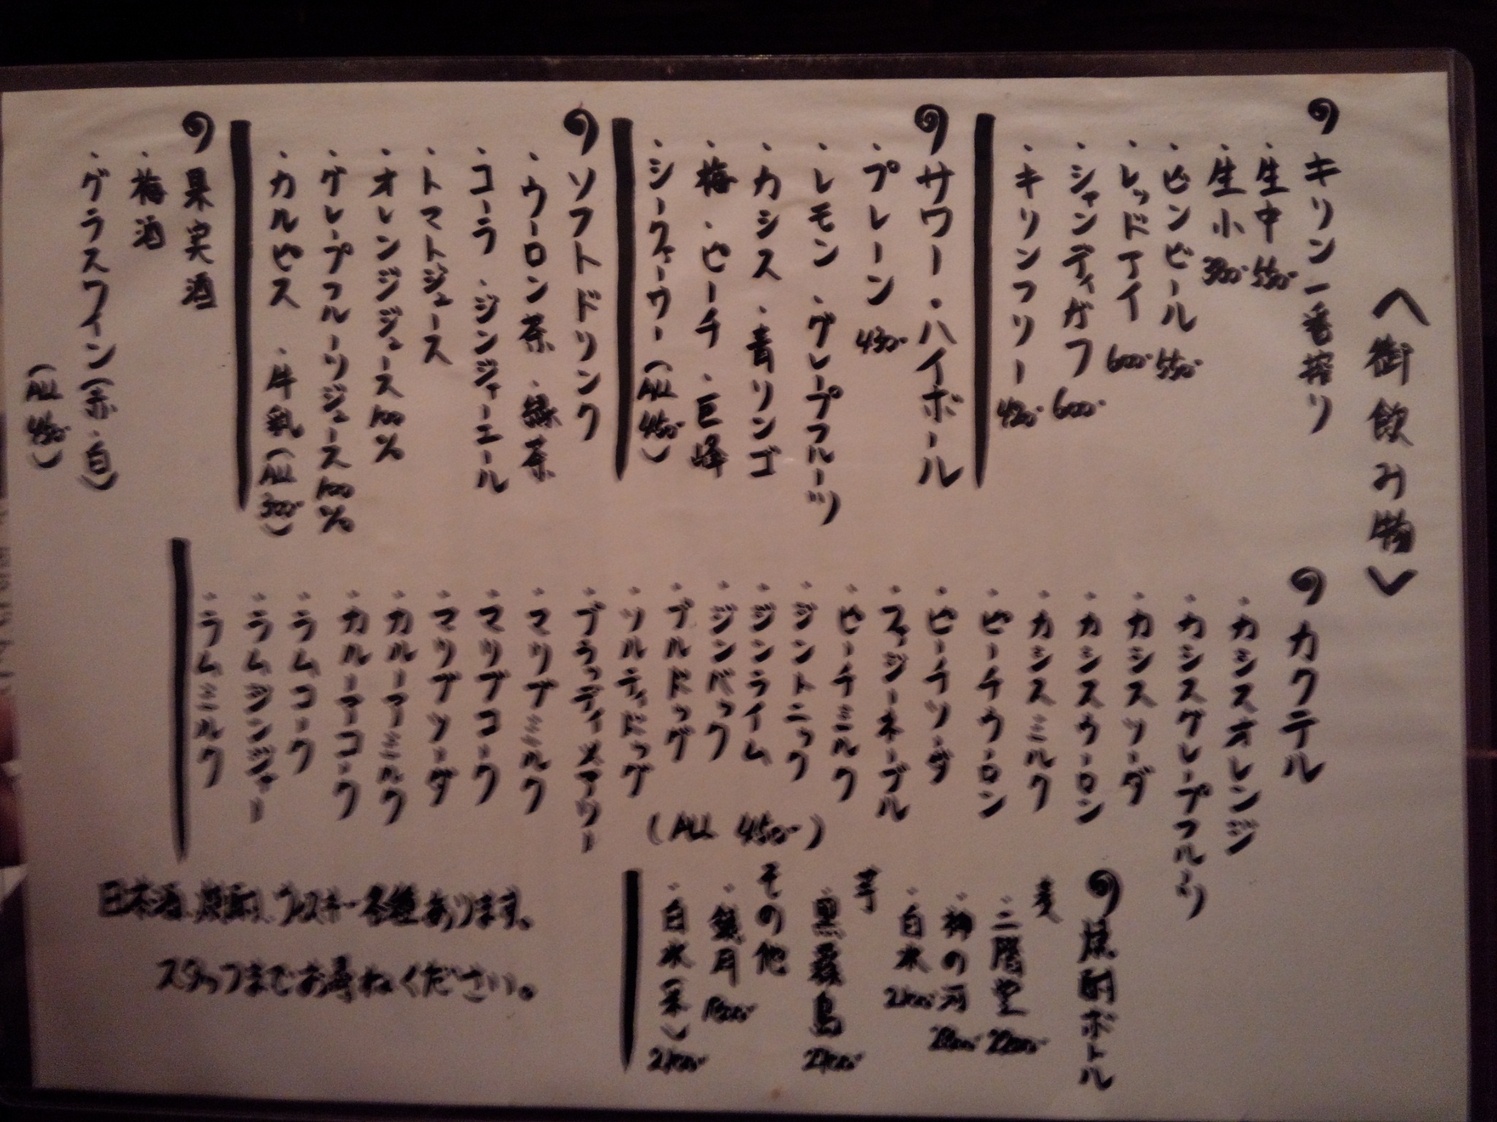 〈御飲み物〉
キリン一番搾り
・生中 550-
・生小 380-
・ビンビール 550-
・レッドアイ 600-
・シャンディガフ 600-
・キリンフリー 420-
サワー・ハイボール
・プレーン 430-
・レモン ・グレープフルーツ
・カシス ・青リンゴ
・梅 ・ピーチ ・巨峰
・シークァーサー (ALL 450-)
ソフトドリンク
・ウーロン茶 ・緑茶
・コーラ ・ジンジャーエール
・トマトジュース
・オレンジジュース100%
・グレープフルーツジュース100%
・カルピス ・牛乳 (ALL 300-)
果実酒
・梅酒
・グラスワイン(赤・白)
(ALL 450-)
カクテル
・カシスオレンジ
・カシスグレープフルーツ
・カシスソーダ
・カシスウーロン
・カシスミルク
・ピーチウーロン
・ピーチソーダ
・ファジーネーブル
・ピーチミルク
・ジントニック
・ジンライム
・ジンバック
・ブルドッグ
・ソルティドッグ
・ブラッディメアリー
・マリブミルク
・マリブコーク
・マリブソーダ
・カルーアミルク
・カルーアコーク
・ラムコーク
・ラムジンジャー
・ラムミルク
(ALL 450-)
焼酎ボトル
麦
・二階堂
・神の河
・白水
芋
・黒霧島
その他
・鏡月
・白水(米)
日本酒、焼酎、ウィスキー各種あります。
スタッフまでお尋ねください。